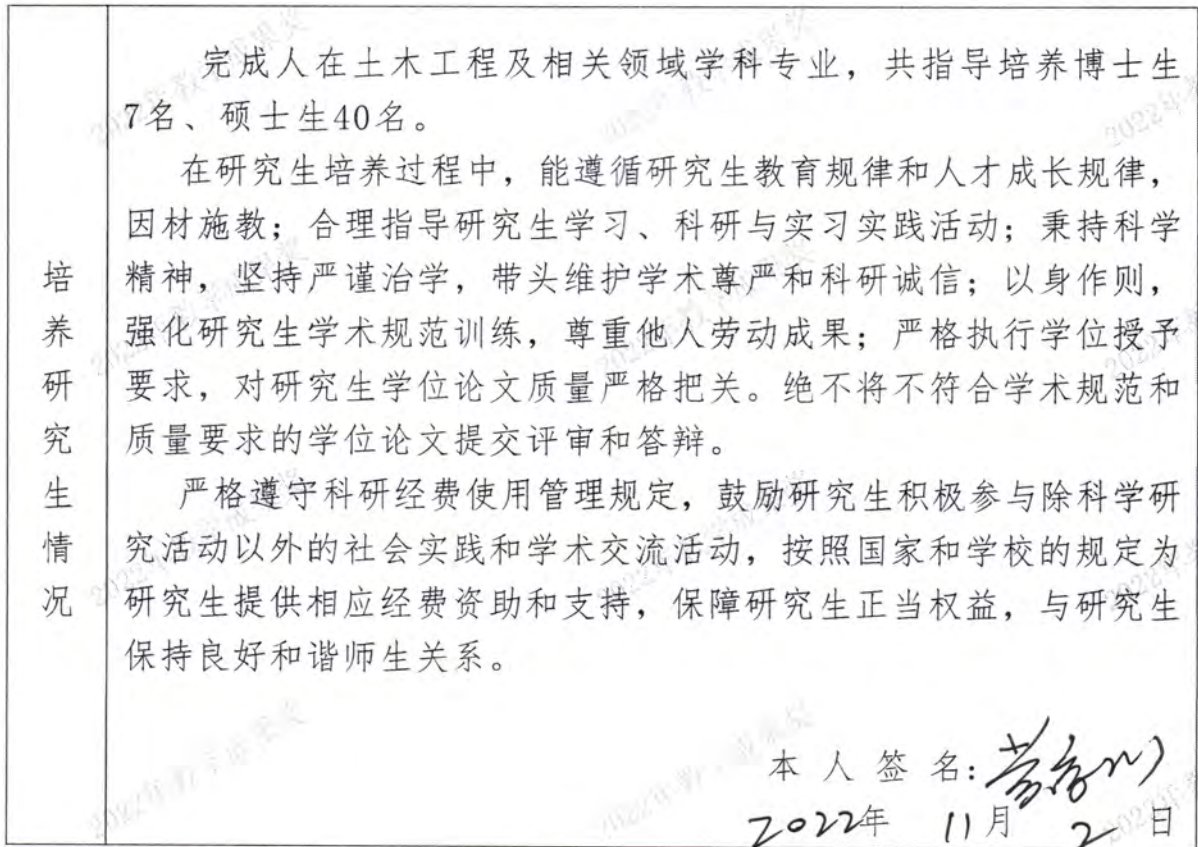 完成人在土木工程及相关领域学科专业，共指导培养博士生
7名、硕士生40名。
在研究生培养过程中，能遵循研究生教育规律和人才成长规律，
因材施教；合理指导研究生学习、科研与实习实践活动；秉持科学
精神，坚持严谨治学，带头维护学术尊严和科研诚信；以身作则，
强化研究生学术规范训练，尊重他人劳动成果；严格执行学位授予
要求，对研究生学位论文质量严格把关。绝不将不符合学术规范和
质量要求的学位论文提交评审和答辩。
严格遵守科研经费使用管理规定，鼓励研究生积极参与除科学研
究活动以外的社会实践和学术交流活动，按照国家和学校的规定为
研究生提供相应经费资助和支持，保障研究生正当权益，与研究生
保持良好和谐师生关系。
培
养
研
究
生
情
况
本人签名:
2022年 11月 2日